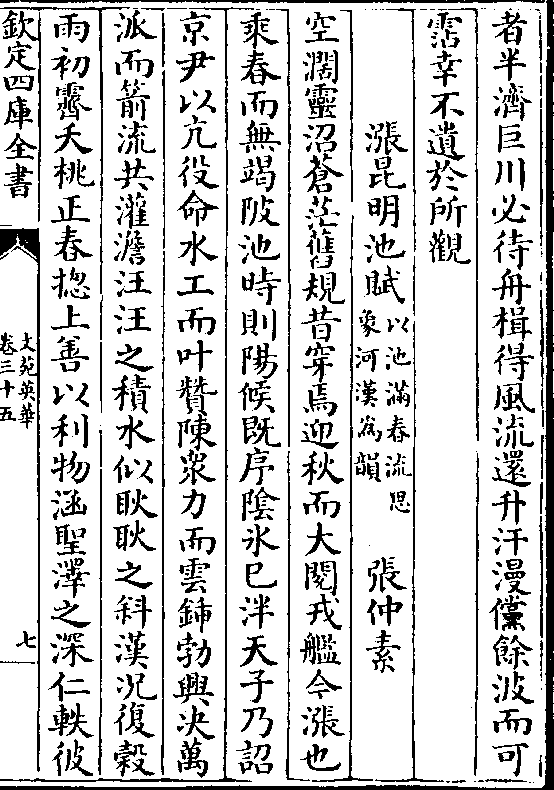 者半濟巨川必待舟楫得風流還升汗漫儻餘波而可
霑幸不遺於所觀
漲昆明池賦以池滿春流思象河漢為韻 張仲素
空濶靈沼蒼茫舊規昔穿焉迎秋而大閱戎艦今漲也
乘春而無竭陂池時則陽候既序陰氷已泮天子乃詔
京尹以亢役命水工而叶贊陳衆力而雲鍤勃興决萬
派而箭流共灌澹汪汪之積水似耿耿之斜漢况復穀
雨初霽夭桃正春揔上善以利物涵聖澤之深仁軼彼
欽定四庫全書
文苑英華
卷三十五
七